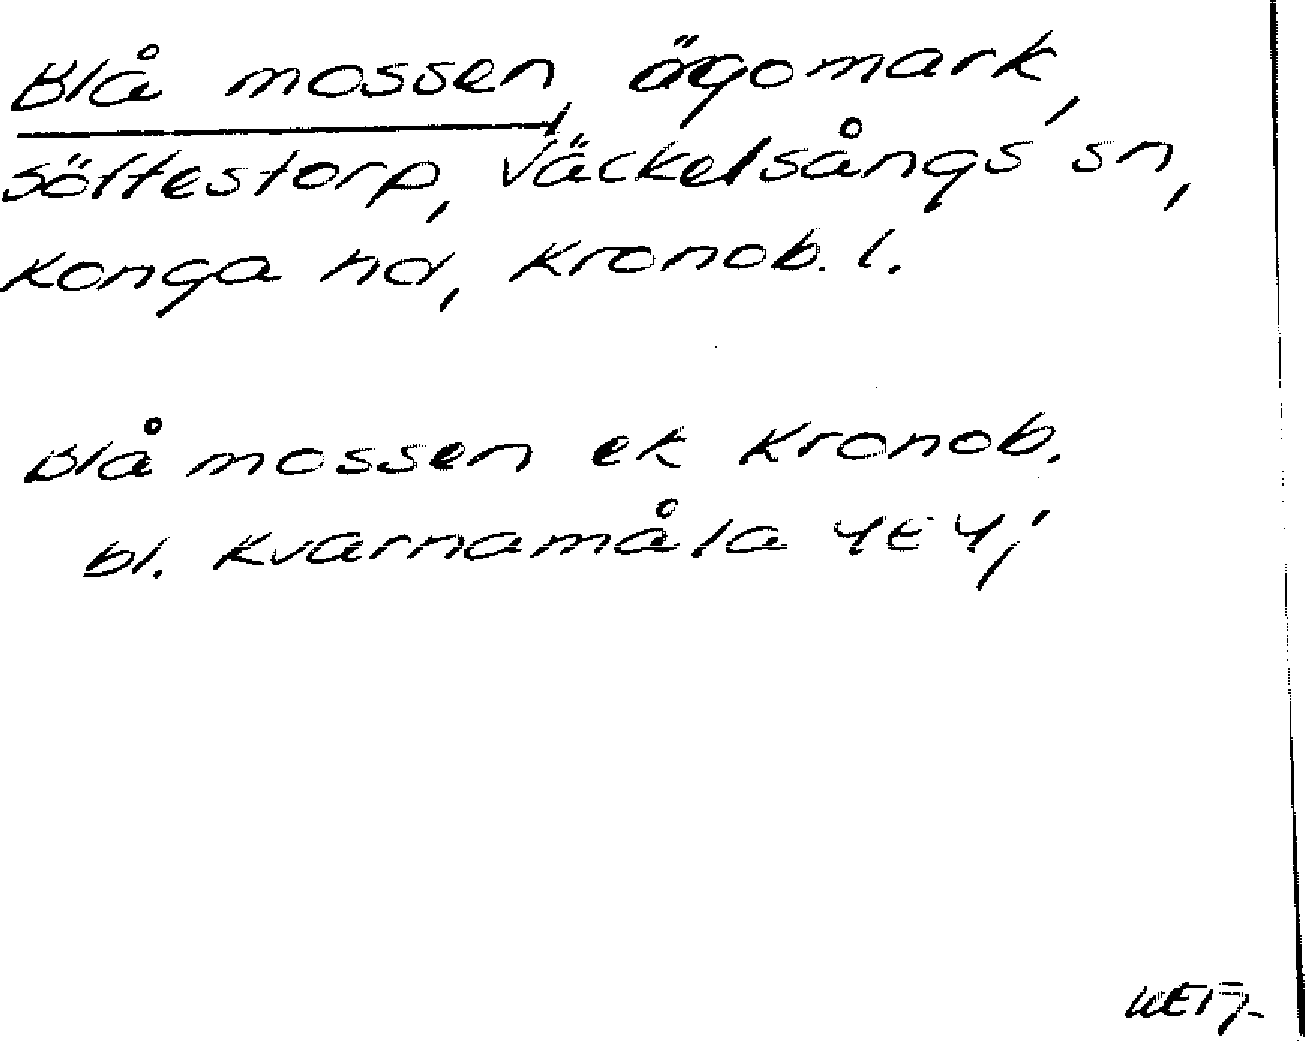 Blå mossen, ägomark,
Söftestorp, Väckelsångs sn,
Konga hd, Kronob. l.
Blå mossen ek Kronob.
bl. Kvarnamåla 4E4;